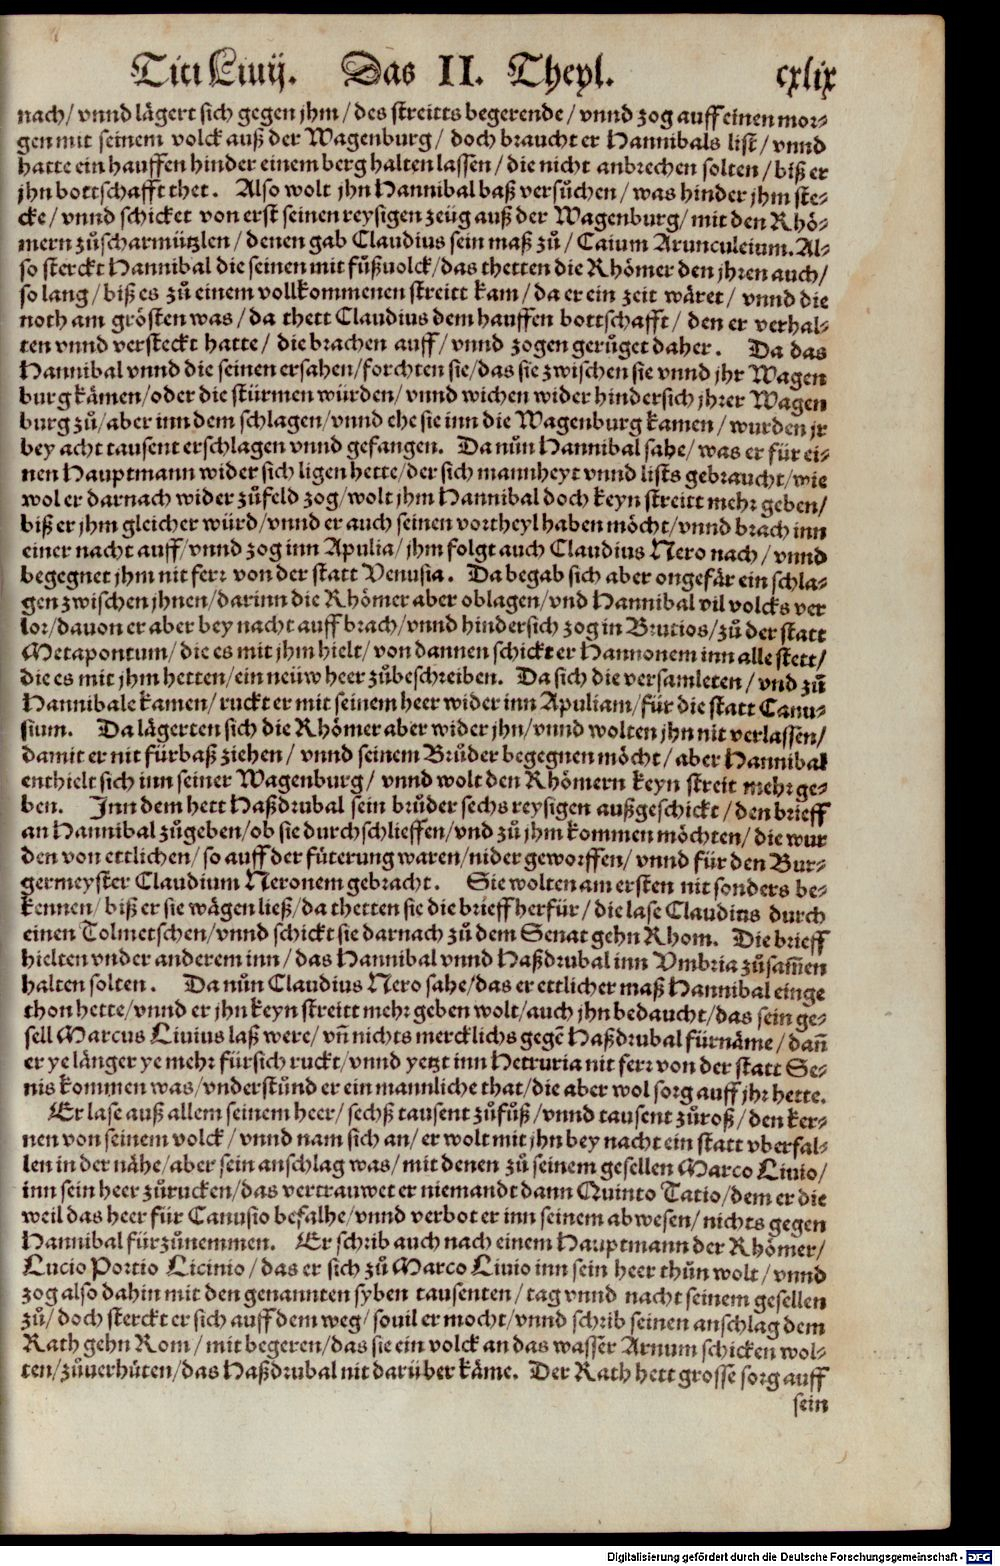 Titi Liuij. Das II. Theyl. cxlix
nach/ vnnd lägert sich gegen jhm/ des streitts begerende/ vnnd zog auff einen mor-
gen mit seinem volck auß der Wagenburg/ doch braucht er Hannibals list/ vnnd
hatte ein hauffen hinder einem berg halten lassen/ die nicht anbrechen solten/ biß er
jhn bottschafft thet. Also wolt jhn Hannibal baß versůchen/ was hinder jhm ste-
cke/ vnnd schicket von erst seinen reysigen zeüg auß der Wagenburg/ mit den Rhö-
mern zůscharmützlen/ denen gab Claudius sein maß zů/ Caium Arunculeium. Al-
so sterckt Hannibal die seinen mit fůßuolck/ das thetten die Rhömer den jhren auch/
so lang/ biß es zů einem vollkommenen streitt kam/ da er ein zeit wäret/ vnnd die
noth am grösten was/ da thett Claudius dem hauffen bottschafft/ den er verhal-
ten vnnd versteckt hatte/ die brachen auff/ vnnd zogen gerůget daher. Da das
Hannibal vnnd die seinen ersahen/ forchten sie/ das sie zwischen sie vnnd jhr Wagen
burg kämen/ oder die stürmen würden/ vnnd wichen wider hindersich jhrer Wagen
burg zů/ aber inn dem schlagen/ vnnd ehe sie inn die Wagenburg kamen/ wurden jr
bey acht tausent erschlagen vnnd gefangen. Da nůn Hannibal sahe/ was er für ei-
nen Hauptmann wider sich ligen hette/ der sich mannheyt vnnd lists gebraucht/ wie
wol er darnach wider zůfeld zog/ wolt jhm Hannibal doch keyn streitt mehr geben/
biß er jhm gleicher würd/ vnnd er auch seinen vortheyl haben möcht/ vnnd brach inn
einer nacht auff/ vnnd zog inn Apulia/ jhm folgt auch Claudius Nero nach/ vnnd
begegnet jhm nit ferr von der statt Venusia. Da begab sich aber ongefär ein schla-
gen zwischen jhnen/ darinn die Rhömer aber oblagen/ vnd Hannibal vil volcks ver
lor/ dauon er aber bey nacht auff brach/ vnnd hindersich zog in Brutios/ zů der statt
Metapontum/ die es mit jhm hielt/ von dannen schickt er Hannonem inn alle stett/
die es mit jhm hetten/ ein neüw heer zůbeschreiben. Da sich die versamleten/ vnd zů
Hannibale kamen/ ruckt er mit seinem heer wider inn Apuliam/ für die statt Canu-
sium. Da lägerten sich die Rhömer aber wider jhn/ vnnd wolten jhn nit verlassen/
damit er nit fürbaß ziehen/ vnnd seinem Brůder begegnen möcht/ aber Hannibal
enthielt sich inn seiner Wagenburg/ vnnd wolt den Rhömern keyn streit mehr ge-
ben. Inn dem hett Haßdrubal sein brůder sechs reysigen außgeschickt/ den brieff
an Hannibal zůgeben/ ob sie durchschlieffen/ vnd zů jhm kommen möchten/ die wur
den von ettlichen/ so auff der fůterung waren/ nider geworffen/ vnnd für den Bur-
germeyster Claudium Neronem gebracht. Sie wolten am ersten nit sonders be-
kennen/ biß er sie wägen ließ/ da thetten sie die brieff herfür/ die lase Claudius durch
einen Tolmetschen/ vnnd schickt sie darnach zů dem Senat gehn Rhom. Die brieff
hielten vnder anderem inn/ das Hannibal vnnd Haßdrubal inn Vmbria zůsam̃en
halten solten. Da nůn Claudius Nero sahe/ das er ettlicher maß Hannibal einge
thon hette/ vnnd er jhn keyn streitt mehr geben wolt/ auch jhn bedaucht/ das sein ge-
sell Marcus Liuius laß were/ vñ nichts mercklichs gegẽ Haßdrubal fürnäme/ dañ
er ye länger ye mehr fürsich ruckt/ vnnd yetzt inn Hetruria nit ferr von der statt Se-
nis kommen was/ vnderstůnd er ein mannliche that/ die aber wol sorg auff jhr hette.
Er lase auß allem seinem heer/ sechß tausent zůfůß/ vnnd tausent zůroß/ den ker-
nen von seinem volck/ vnnd nam sich an/ er wolt mit jhn bey nacht ein statt vberfal-
len in der nähe/ aber sein anschlag was/ mit denen zů seinem gesellen Marco Liuio/
inn sein heer zůrucken/ das vertrauwet er niemandt dann Quinto Tatio/ dem er die
weil das heer für Canusio befalhe/ vnnd verbot er inn seinem abwesen/ nichts gegen
Hannibal fürzůnemmen. Er schrib auch nach einem Hauptmann der Rhömer/
Lucio Portio Licinio/ das er sich zů Marco Liuio inn sein heer thůn wolt/ vnnd
zog also dahin mit den genannten syben tausenten/ tag vnnd nacht seinem gesellen
zů/ doch sterckt er sich auff dem weg/ souil er mocht/ vnnd schrib seinen anschlag dem
Rath gehn Rom/ mit begeren/ das sie ein volck an das wasser Arnum schicken wol-
ten/ zůuerhüten/ das Haßdrubal nit darüber käme. Der Rath hett grosse sorg auff
sein
Digitalisierung gefördert durch die Deutsche Forschungsgemeinschaft - DFG